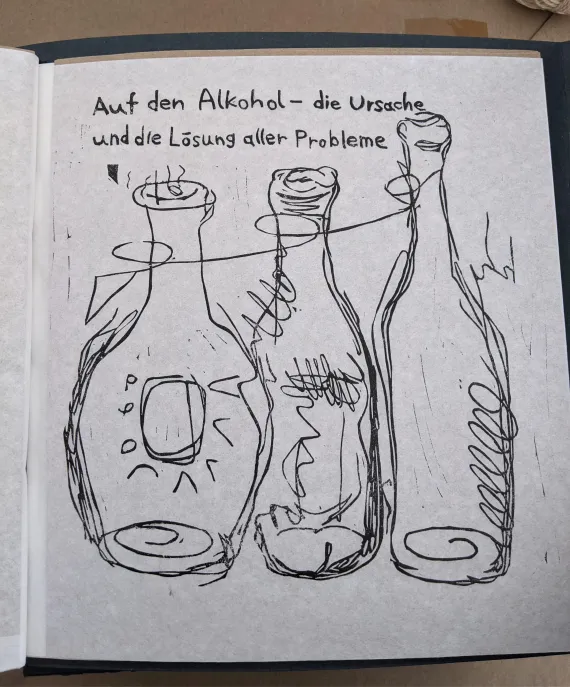 Auf den Alkohol – die Ursache
und die Lösung aller Probleme